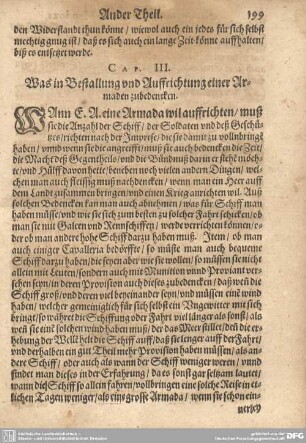 Ander Theil. 199
den Widerstandt thun könne / wiewol auch ein jedes für sich selbst
mechtig gnug ist / daß es sich auch ein lange Zeit könne auffhalten /
biß es entsetzet werde.
CAP. III.
Was in Bestallung vnd Auffrichtung einer Ar-
maden zubedencken.
WAnn E. A. eine Armada wil auffrichten / muß
sie die Anzahl der Schiff / der Soldaten vnd deß Geschü-
tzes / richten nach der Impresse / die sie damit zu vollnbringt
haben / vnnd wenn sie die angreifft / muß sie auch bedencken die Zeit /
die Macht deß Gegentheils / vnd die Bündnuß darin er steht möch-
te / vnd Hülff davon hette / beneben noch vielen andern Dingen / wel-
chen man auch fleissig muß nachdencken / wenn man ein Heer auff
dem Landt zusammen bringen vnd einen Krieg anrichten wil. Auß
solchen Bedencken kan man auch abnehmen / was für Schiff man
haben müsse / vnd wie sie sich zum besten zu solcher Fahrt schicken / ob
man sie mit Galeen vnd Rennschiffen / werde verrichten können / o-
der ob man andere hohe Schiff darzu haben muß. Item / ob man
auch einiger Cavalleria bedörffte / so müßte man auch bequeme
Schiff darzu haben / die seyen aber wie sie wollen / so müssen sie nicht
allein mit Leuten / sondern auch mit Munition vnnd Proviant ver-
sehen seyn / in deren Provision auch dieses zubedencken / daß weñ die
Schiff groß / vnd deren viel beyeinander seyn / vnd müssen ein wind
haben / welcher gemeiniglich für sich selbst ein Vngewitter mit sich
bringt / so währet die Schiffung oder Fahrt viel länger als sonst / als
weñ sie eine solchen wind haben muß / der das Meer stillet / deñ die er-
hebung der Wellē helt die Schiff auff / daß sie lenger auff der Fahrt /
vnd derhalben ein gut Theil mehr Provision haben müssen / als an-
dere Schiff / oder auch als wann der Schiff weniger weren / vnnd
findet man dieses in der Erfahrung / da es sonst gar seltzam lautet /
wann die Schiff so allein fahren / vollnbringen eine solche Reise in et-
lichen Tagen weniger / als eins groß Armada / wenn sie schon ein-